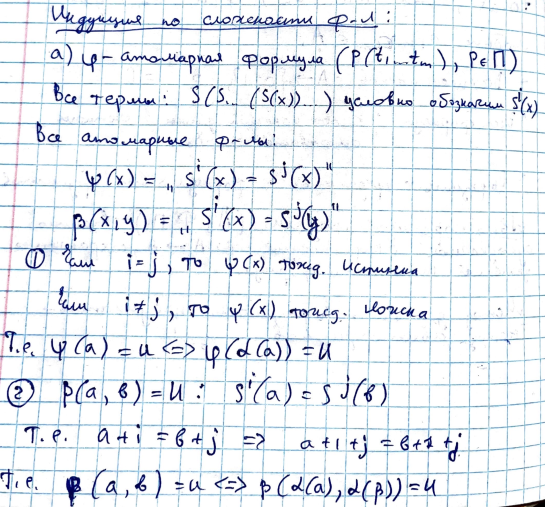 Индукция по сложности ф-л:
а) φ-атомарная формула (P(t₁...tₘ), P∈П)
Все термы: S(S...(S(x))...) условно обозначим Sⁱ(x)
Все атомарные ф-лы:
φ(x) = „Sⁱ(x) = Sʲ(x)"
β(x,y) = „Sⁱ(x) = Sʲ(y)"
① Если i=j, то φ(x) тожд. истинна
Если i≠j, то φ(x) тожд. ложна
Т.е. φ(a) = И <=> φ(α(a)) = И
② β(a, в) = И: Sⁱ(a) = Sʲ(в)
Т.е. a+i = в+j => a+1+j = в+1+j
Т.е. β(a, в) = И <=> β(α(a), α(β)) = И